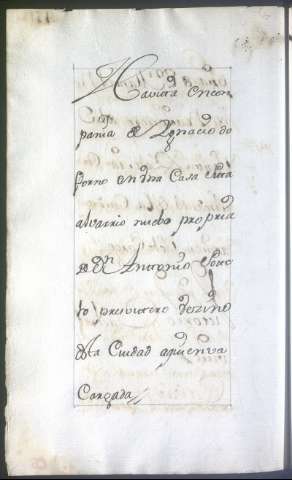 Havita en con
pania de Ygnacio do
forno en una Casa sita
al varrio nuebo propria
de Dn Antonio Soto
presvitero vezino
desta Ciudad aquien va
Cargada